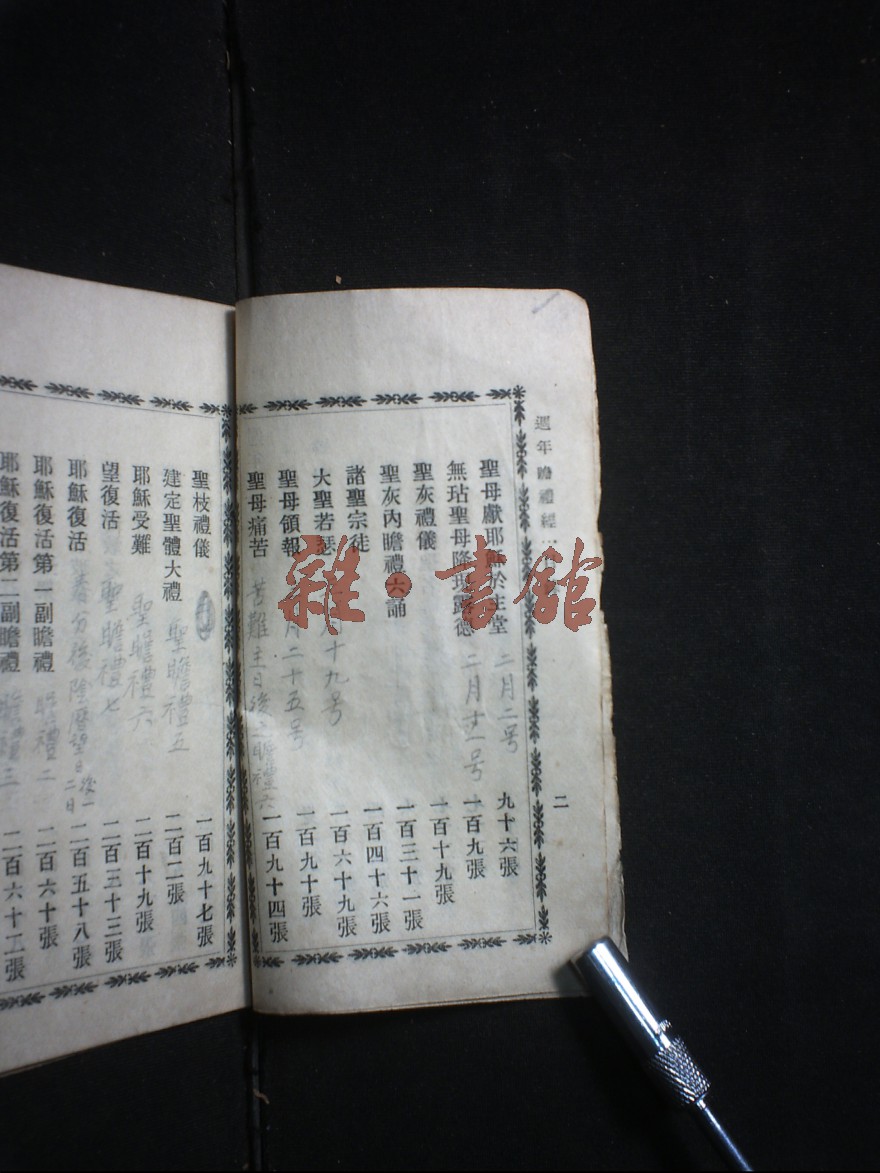 週年瞻禮經
二
聖母獻耶穌於主堂 二月二号 九十六張
無玷聖母降現露德 二月十一号 一百九張
聖灰禮儀 一百十九張
聖灰內瞻禮六誦 一百三十一張
諸聖宗徒 一百四十六張
大聖若瑟 十九号 一百六十九張
聖母領報 月二十五号 一百九十張
聖母痛苦 苦難主日後之瞻禮六 一百九十四張
聖枝禮儀 一百九十七張
建定聖體大禮 聖瞻禮五 二百二張
耶穌受難 聖瞻禮六 二百十九張
望復活 聖瞻禮七 二百三十三張
耶穌復活 春分後陰曆望日後一二日 二百五十八張
耶穌復活第一副瞻禮 瞻禮二 二百六十張
耶穌復活第二副瞻禮 瞻禮三 二百六十二張
雜·書館